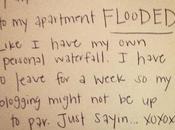 to my apartment FLOODED
Like I have my own
personal waterfall. I have
to leave for a week so my
blogging might not be up
to par. Just Sayin... xoxox